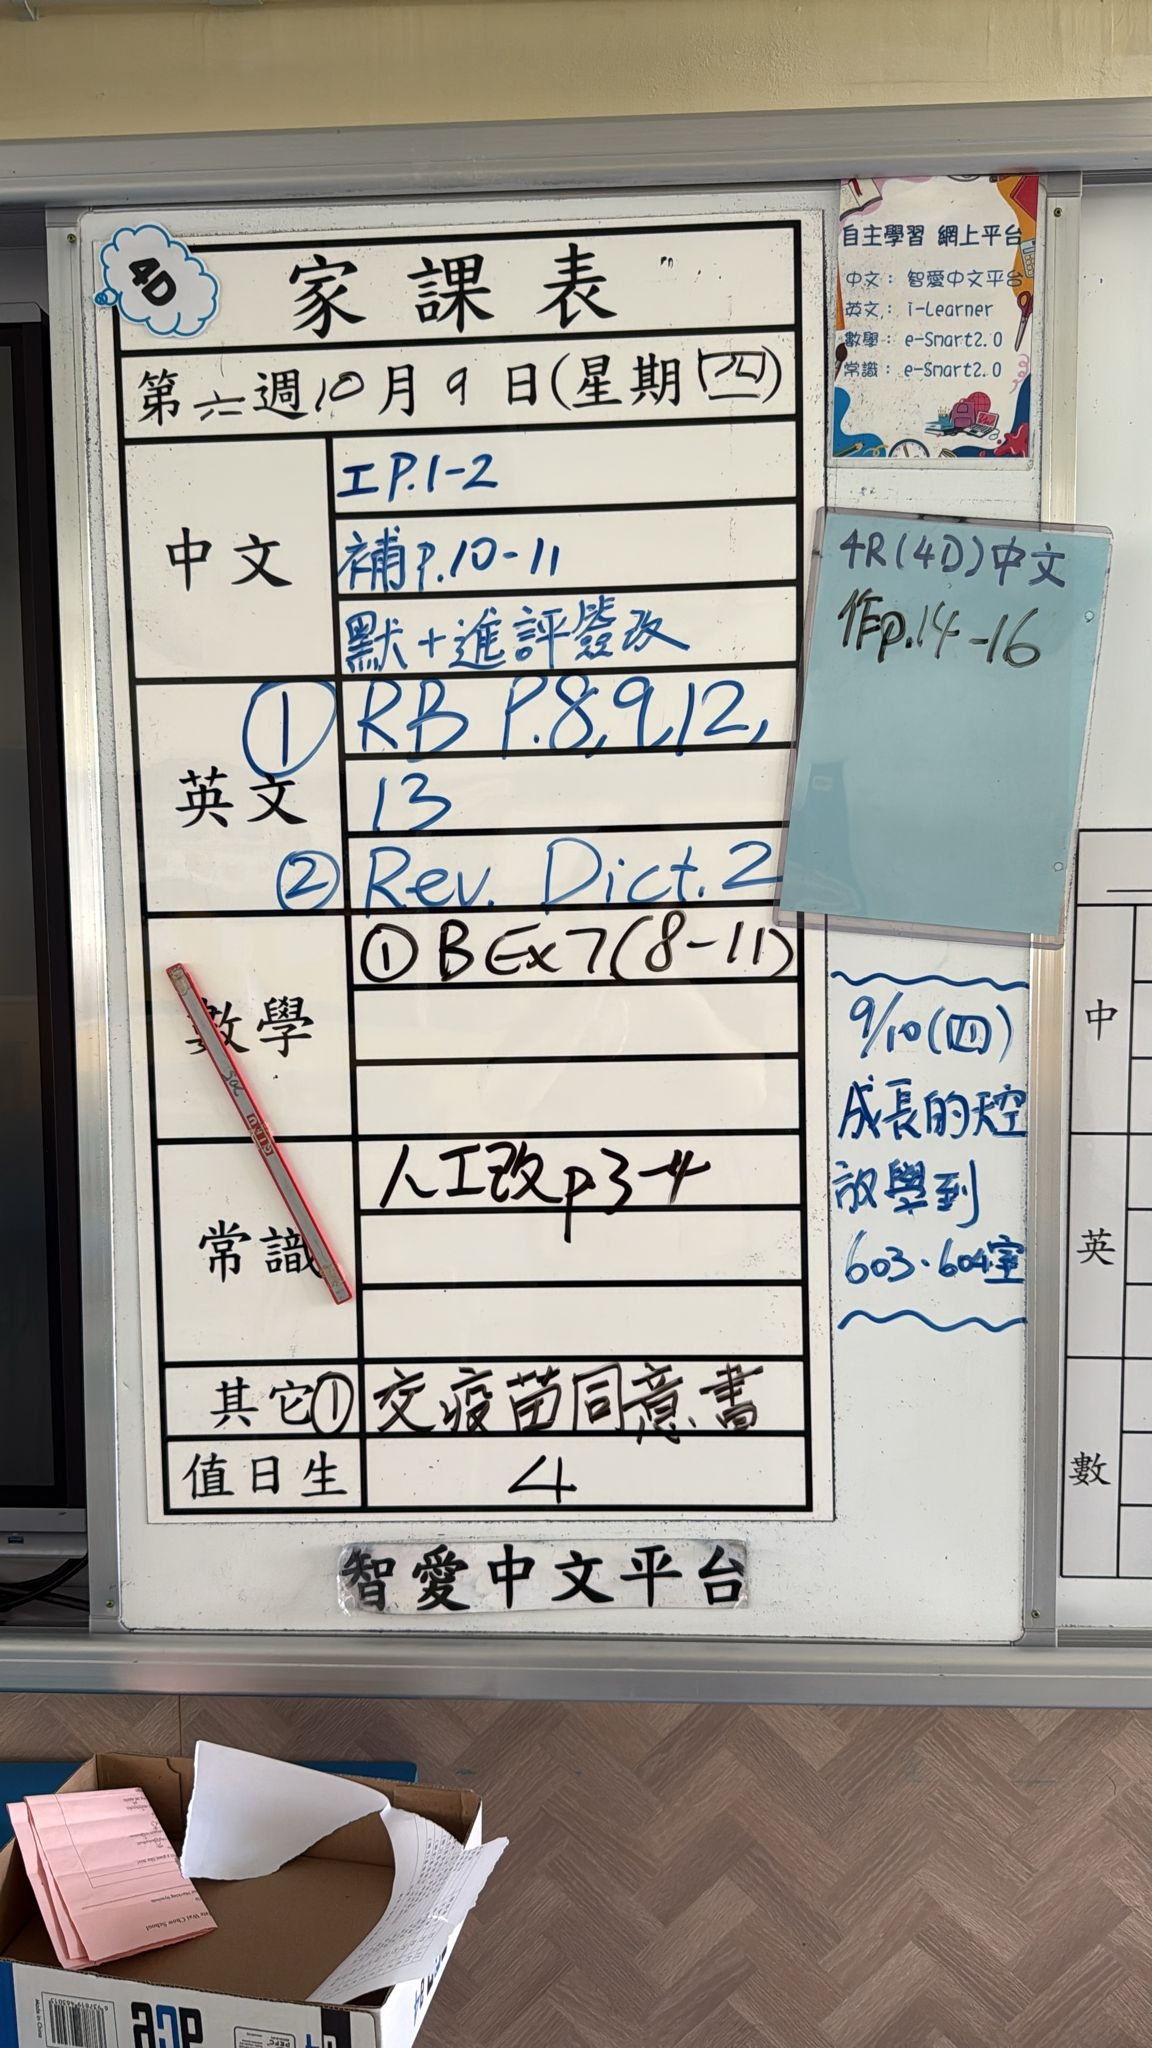 4D
家課表
第六週10月9日(星期四)
中文
工P.1-2
補p.10-11
默+進評簽改
英文
① RB P.8,9,12,
13
② Rev. Dict.2
數學
① B Ex7(8-11)
常識
人工改p3-4
其它① 交疫苗同意書
值日生 4
智愛中文平台
自主學習 網上平台
中文：智愛中文平台
英文：i-Learner
數學：e-Smart2.0
常識：e-Smart2.0
4R(4D)中文
作p.14-16
9/10(四)
成長的天空
放學到
603、604室
中
英
數
Wai Chow School
Made in China